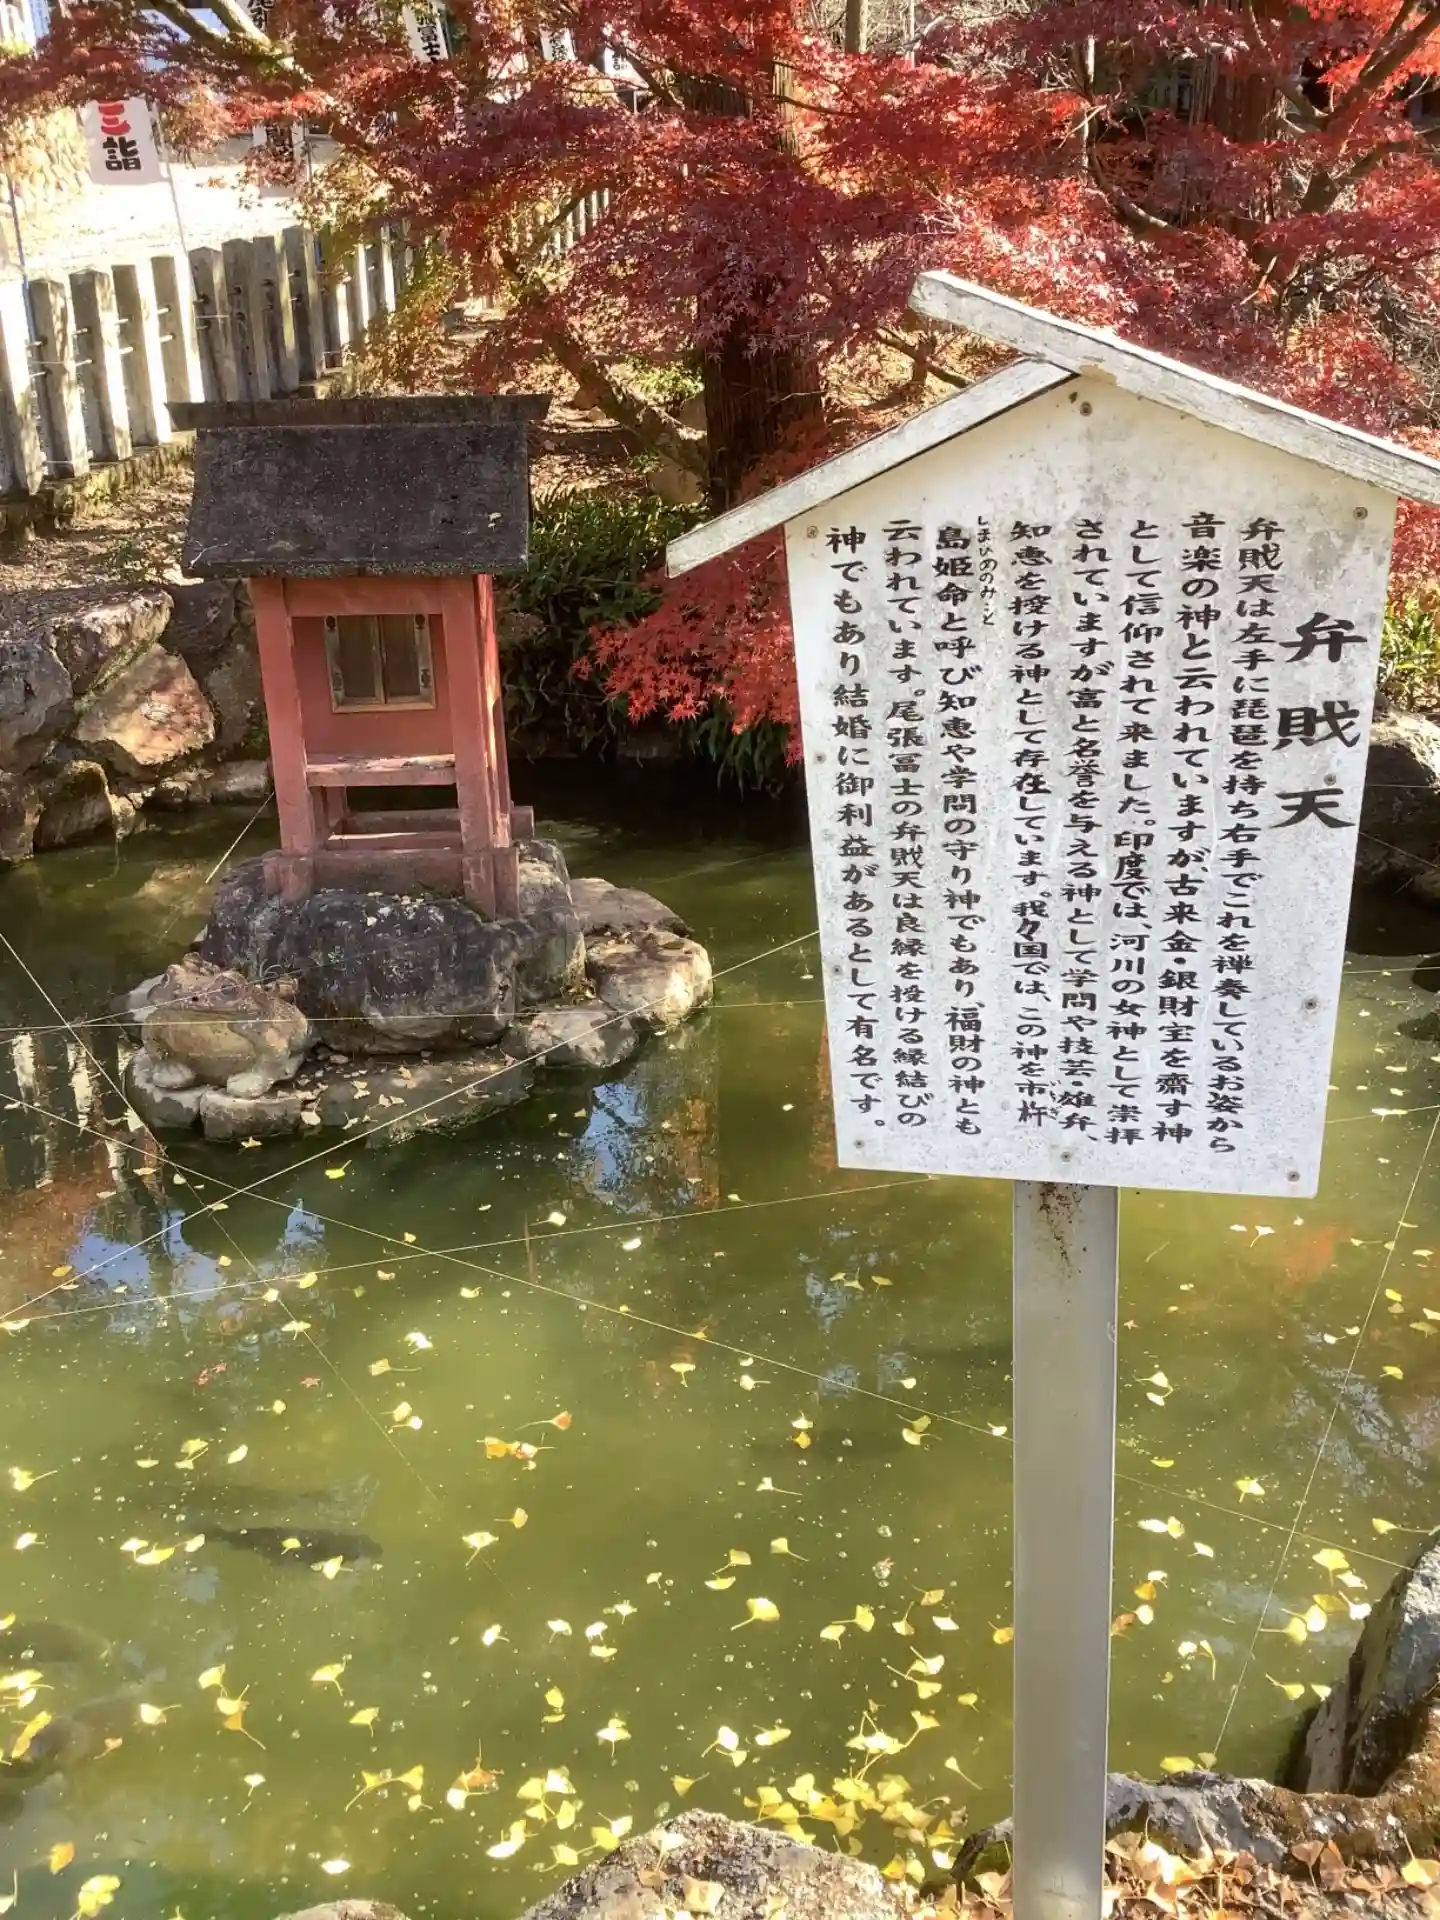 三
詣
弁賎天
弁賎天は左手に琵琶を持ち右手でこれを禅奏しているお姿から
音楽の神と云われていますが、古来金・銀財宝を齋す神
として信仰されて来ました。印度では、河川の女神として崇拝
されていますが富と名誉を与える神として学問や技芸・雄弁、
知恵を授ける神として存在しています。我々国では、この神を市杵
しまひめのみこと
島姫命と呼び知恵や学問の守り神でもあり、福財の神とも
云われています。尾張冨士の弁賎天は良縁を授ける縁結びの
神でもあり結婚に御利益があるとして有名です。